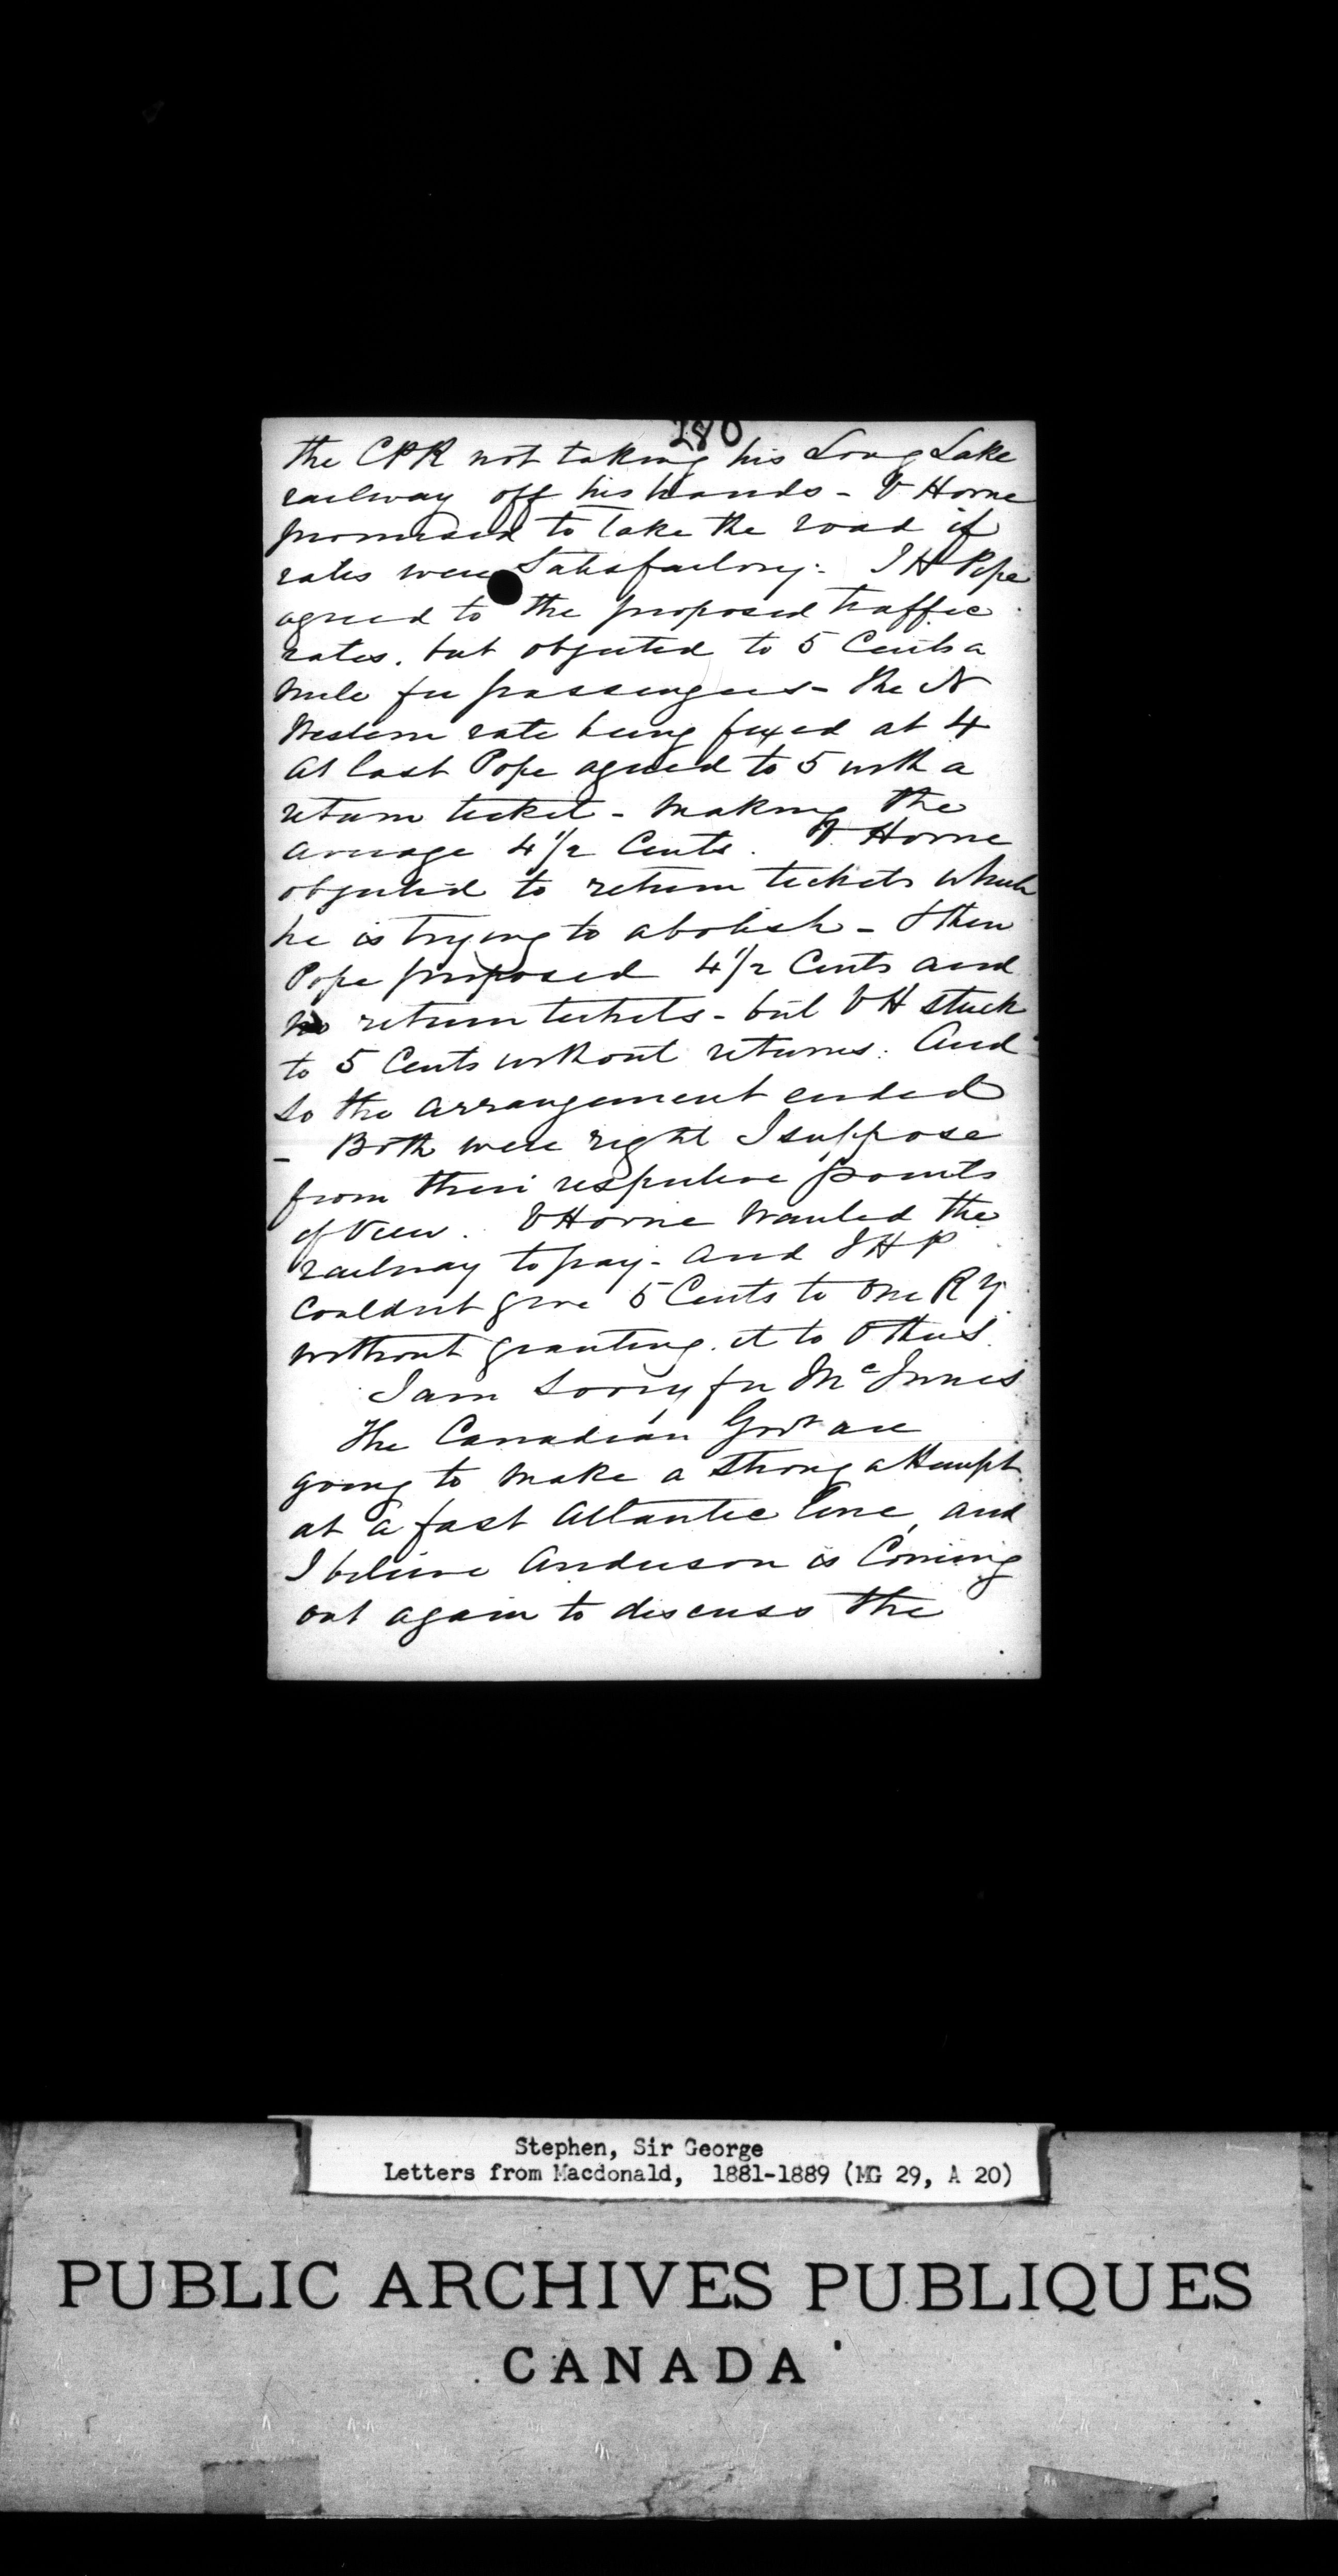 280
the CPR not taking his Long Lake
railway off his hands - V Horne
promised to take the road if
rates were satisfactory. J H Pope
agreed to the proposed traffic
rates. but objected to 5 Cents a
mile for passengers - the N
Western rate being fixed at 4
At last Pope agreed to 5 with a
return ticket - making the
average 4 1/2 Cents. V. Horne
objected to return tickets which
he is trying to abolish - & then
Pope proposed 4 1/2 Cents and
no return tickets - but V H stuck
to 5 Cents without returns. And
so the arrangement ended
- Both were right I suppose
from their respective points
of view. V Horne wanted the
railway to pay - and J H P
couldnt give 5 Cents to one Ry
without granting it to others.
I am sorry for McInnes
The Canadian Govt are
going to make a strong attempt
at a fast Atlantic line, and
I believe Anderson is coming
out again to discuss the
Stephen, Sir George
Letters from Macdonald, 1881-1889 (MG 29, A 20)
PUBLIC ARCHIVES PUBLIQUES
CANADA